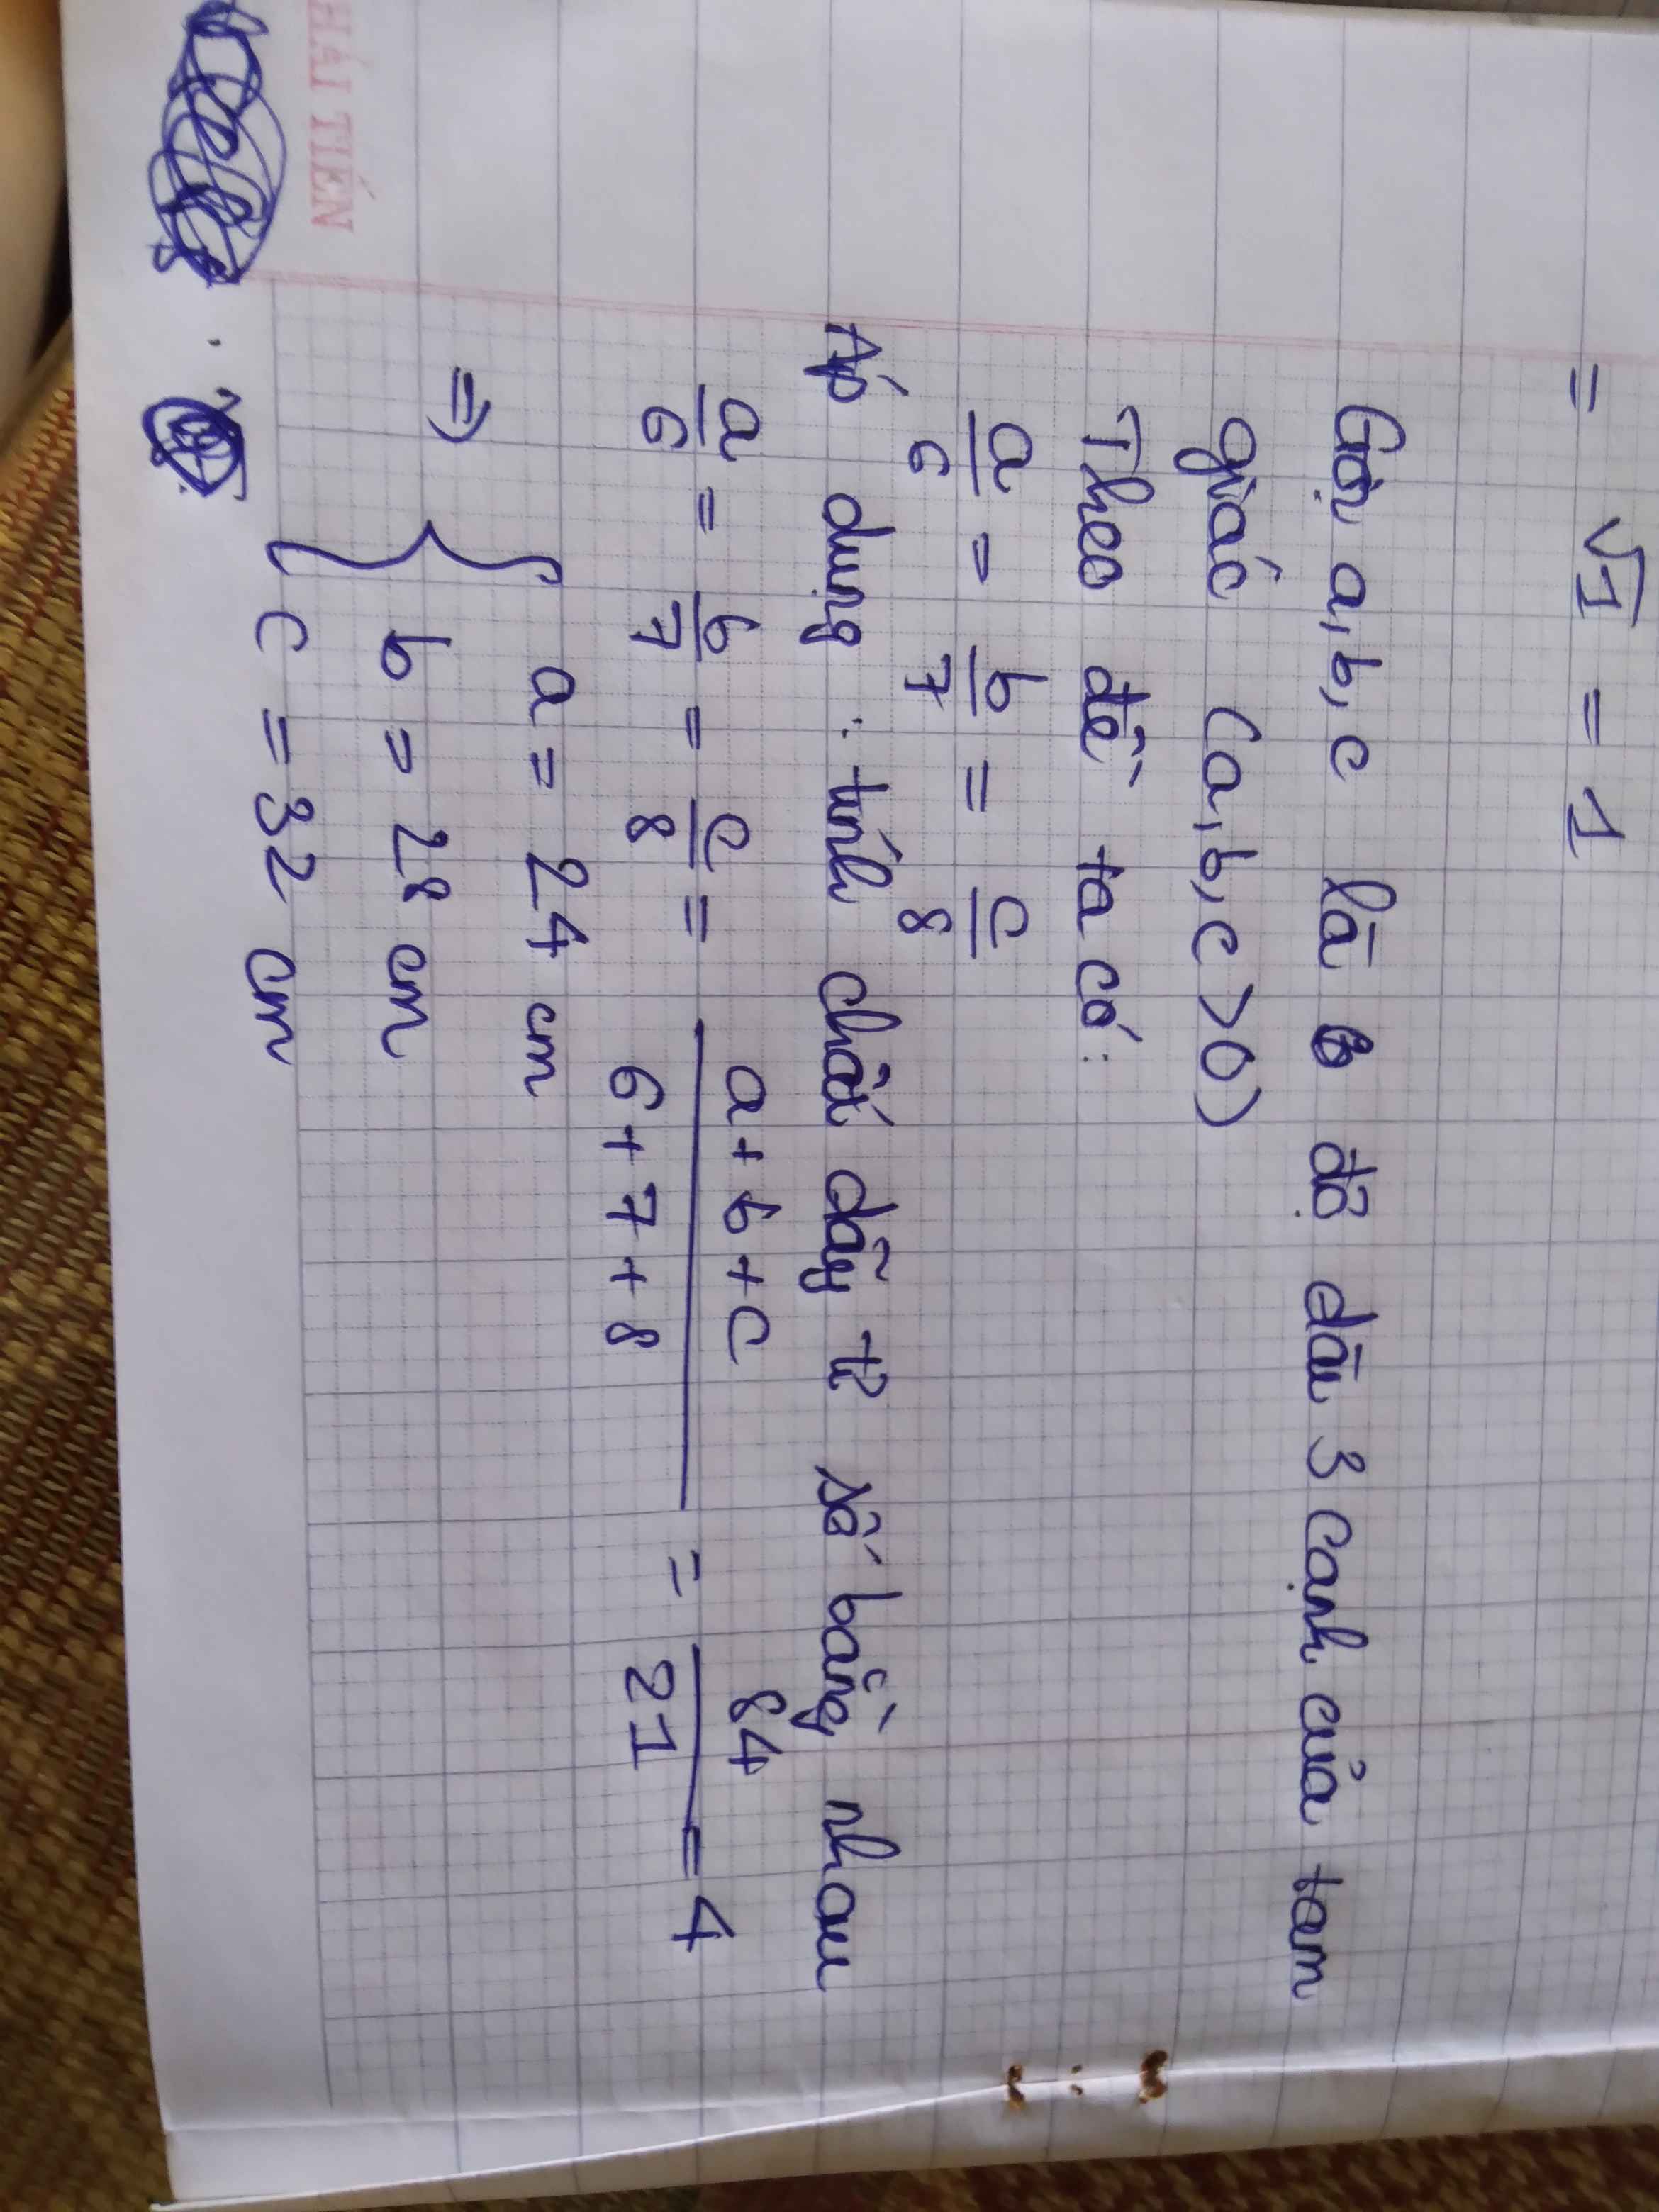 = √1 = 1
Gọi a, b, c là độ dài 3 cạnh của tam
giác (a, b, c > 0)
Theo đề ta có:
a/6 = b/7 = c/8
Áp dụng : tính chất dãy tỉ số bằng nhau
a/6 = b/7 = c/8 = (a + b + c)/(6 + 7 + 8) = 84/21 = 4
⇒ { a = 24 cm
b = 28 cm
c = 32 cm
HẢI TIẾN